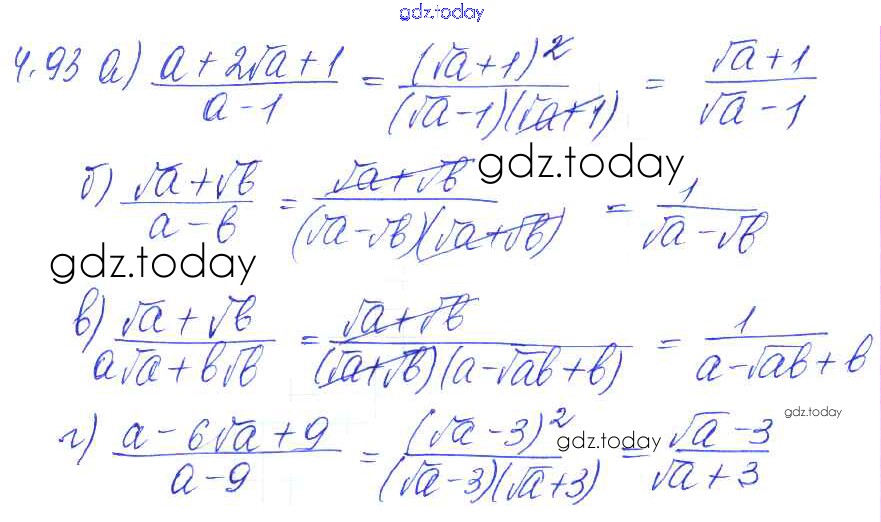 gdz.today
4.93 а) (a + 2√a + 1)/(a - 1) = (√a + 1)²/((√a - 1)(√a + 1)) = (√a + 1)/(√a - 1)
б) (√a + √b)/(a - b) = (√a + √b)/((√a - √b)(√a + √b)) = 1/(√a - √b)
gdz.today
gdz.today
в) (√a + √b)/(a√a + b√b) = (√a + √b)/((√a + √b)(a - √ab + b)) = 1/(a - √ab + b)
г) (a - 6√a + 9)/(a - 9) = (√a - 3)²/((√a - 3)(√a + 3)) = (√a - 3)/(√a + 3)
gdz.today
gdz.today